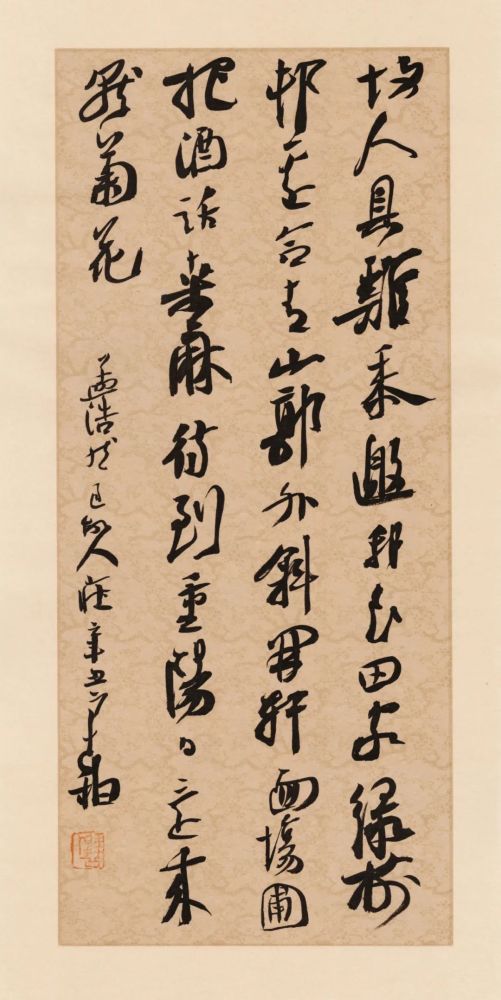 故人具雞黍邀我至田家綠樹
邨邊合青山郭外斜開軒面場圃
把酒話桑麻待到重陽日還來
就菊花
孟浩然過故人莊辛丑